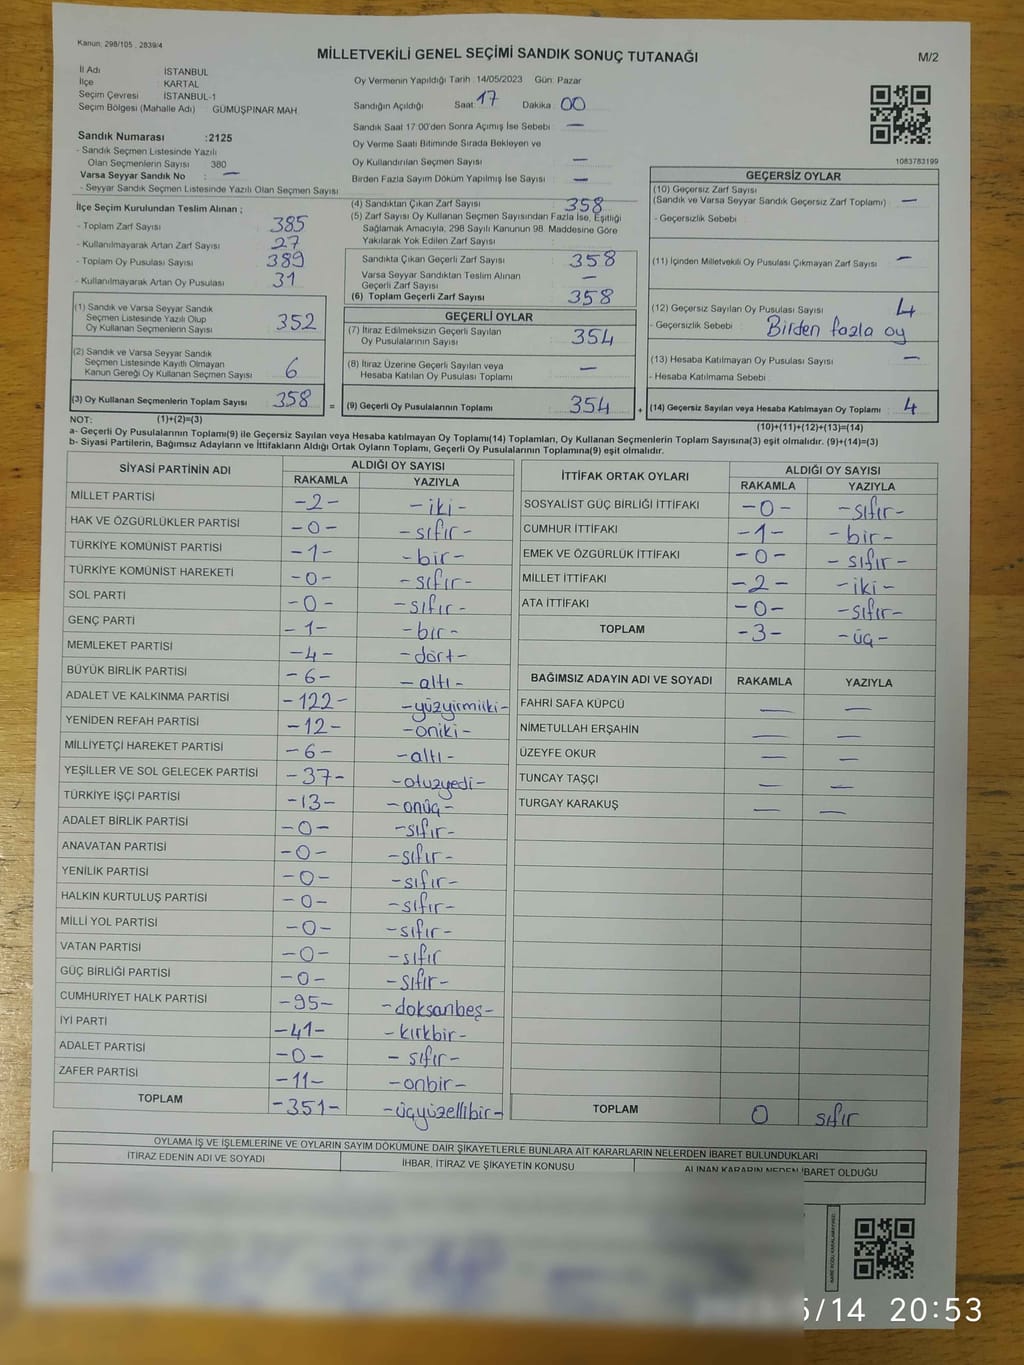 Kanun, 298/105 , 2839/4
MİLLETVEKİLİ GENEL SEÇİMİ SANDIK SONUÇ TUTANAĞI
M/2
İl Adı İSTANBUL
İlçe KARTAL
Seçim Çevresi İSTANBUL-1
Seçim Bölgesi (Mahalle Adı) GÜMÜŞPINAR MAH.
Sandık Numarası :2125
- Sandık Seçmen Listesinde Yazılı
Olan Seçmenlerin Sayısı 380
Varsa Seyyar Sandık No : —
- Seyyar Sandık Seçmen Listesinde Yazılı Olan Seçmen Sayısı
Oy Vermenin Yapıldığı Tarih : 14/05/2023 Gün: Pazar
Sandığın Açıldığı Saat: 17 Dakika : 00
Sandık Saat 17:00'den Sonra Açılmış İse Sebebi : —
Oy Verme Saati Bitiminde Sırada Bekleyen ve
Oy Kullandırılan Seçmen Sayısı : —
Birden Fazla Sayım Döküm Yapılmış İse Sayısı : —
1083783199
İlçe Seçim Kurulundan Teslim Alınan ;
- Toplam Zarf Sayısı : 385
- Kullanılmayarak Artan Zarf Sayısı : 27
- Toplam Oy Pusulası Sayısı : 389
- Kullanılmayarak Artan Oy Pusulası : 31
(1) Sandık ve Varsa Seyyar Sandık
Seçmen Listesinde Yazılı Olup
Oy Kullanan Seçmenlerin Sayısı : 352
(2) Sandık ve Varsa Seyyar Sandık
Seçmen Listesinde Kayıtlı Olmayan
Kanun Gereği Oy Kullanan Seçmen Sayısı : 6
(3) Oy Kullanan Seçmenlerin Toplam Sayısı : 358
(4) Sandıktan Çıkan Zarf Sayısı : 358
(5) Zarf Sayısı Oy Kullanan Seçmen Sayısından Fazla İse, Eşitliği
Sağlamak Amacıyla, 298 Sayılı Kanunun 98. Maddesine Göre
Yakılarak Yok Edilen Zarf Sayısı :
Sandıkta Çıkan Geçerli Zarf Sayısı : 358
Varsa Seyyar Sandıktan Teslim Alınan
Geçerli Zarf Sayısı : —
(6) Toplam Geçerli Zarf Sayısı : 358
GEÇERLİ OYLAR
(7) İtiraz Edilmeksizin Geçerli Sayılan
Oy Pusulalarının Sayısı : 354
(8) İtiraz Üzerine Geçerli Sayılan veya
Hesaba Katılan Oy Pusulası Toplamı : —
= (9) Geçerli Oy Pusulalarının Toplamı : 354
GEÇERSİZ OYLAR
(10) Geçersiz Zarf Sayısı
(Sandık ve Varsa Seyyar Sandık Geçersiz Zarf Toplamı) : —
- Geçersizlik Sebebi :
(11) İçinden Milletvekili Oy Pusulası Çıkmayan Zarf Sayısı : —
(12) Geçersiz Sayılan Oy Pusulası Sayısı : 4
- Geçersizlik Sebebi : Birden fazla oy
(13) Hesaba Katılmayan Oy Pusulası Sayısı : —
- Hesaba Katılmama Sebebi
+ (14) Geçersiz Sayılan veya Hesaba Katılmayan Oy Toplamı : 4
NOT: (1)+(2)=(3)
(10)+(11)+(12)+(13)=(14)
a- Geçerli Oy Pusulalarının Toplamı(9) ile Geçersiz Sayılan veya Hesaba katılmayan Oy Toplamı(14) Toplamları, Oy Kullanan Seçmenlerin Toplam Sayısına(3) eşit olmalıdır. (9)+(14)=(3)
b- Siyasi Partilerin, Bağımsız Adayların ve İttifakların Aldığı Ortak Oyların Toplamı, Geçerli Oy Pusulalarının Toplamına(9) eşit olmalıdır.
SİYASİ PARTİNİN ADI ALDIĞI OY SAYISI
RAKAMLA YAZIYLA
MİLLET PARTİSİ -2- -iki-
HAK VE ÖZGÜRLÜKLER PARTİSİ -0- -sıfır-
TÜRKİYE KOMÜNİST PARTİSİ -1- -bir-
TÜRKİYE KOMÜNİST HAREKETİ -0- -sıfır-
SOL PARTİ -0- -sıfır-
GENÇ PARTİ -1- -bir-
MEMLEKET PARTİSİ -4- -dört-
BÜYÜK BİRLİK PARTİSİ -6- -altı-
ADALET VE KALKINMA PARTİSİ -122- -yüzyirmiiki-
YENİDEN REFAH PARTİSİ -12- -oniki-
MİLLİYETÇİ HAREKET PARTİSİ -6- -altı-
YEŞİLLER VE SOL GELECEK PARTİSİ -37- -otuzyedi-
TÜRKİYE İŞÇİ PARTİSİ -13- -onüç-
ADALET BİRLİK PARTİSİ -0- -sıfır-
ANAVATAN PARTİSİ -0- -sıfır-
YENİLİK PARTİSİ -0- -sıfır-
HALKIN KURTULUŞ PARTİSİ -0- -sıfır-
MİLLİ YOL PARTİSİ -0- -sıfır-
VATAN PARTİSİ -0- -sıfır
GÜÇ BİRLİĞİ PARTİSİ -0- -sıfır-
CUMHURİYET HALK PARTİSİ -95- -doksanbeş-
İYİ PARTİ -41- -kırkbir-
ADALET PARTİSİ -0- -sıfır-
ZAFER PARTİSİ -11- -onbir-
TOPLAM -351- -üçyüzellibir-
İTTİFAK ORTAK OYLARI ALDIĞI OY SAYISI
RAKAMLA YAZIYLA
SOSYALİST GÜÇ BİRLİĞİ İTTİFAKI -0- -sıfır-
CUMHUR İTTİFAKI -1- -bir-
EMEK VE ÖZGÜRLÜK İTTİFAKI -0- -sıfır-
MİLLET İTTİFAKI -2- -iki-
ATA İTTİFAKI -0- -sıfır-
TOPLAM -3- -üç-
BAĞIMSIZ ADAYIN ADI VE SOYADI RAKAMLA YAZIYLA
FAHRİ SAFA KÜPCÜ — —
NİMETULLAH ERŞAHİN — —
ÜZEYFE OKUR — —
TUNCAY TAŞÇI — —
TURGAY KARAKUŞ — —
TOPLAM 0 sıfır
OYLAMA İŞ VE İŞLEMLERİNE VE OYLARIN SAYIM DÖKÜMÜNE DAİR ŞİKAYETLERLE BUNLARA AİT KARARLARIN NELERDEN İBARET BULUNDUKLARI
İTİRAZ EDENİN ADI VE SOYADI İHBAR, İTİRAZ VE ŞİKAYETİN KONUSU ALINAN KARARIN NEDEN İBARET OLDUĞU
5/14 20:53